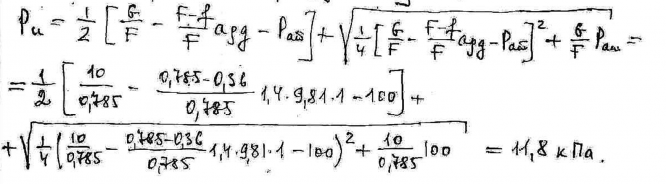 Pи = 1/2 [G/F − (F−f)/F aρg − Pат] + √(1/4 [G/F − (F−f)/F aρg − Pат]² + G/F Pат) =
= 1/2 [10/0,785 − (0,785−0,36)/0,785 1,4·9,81·1 − 100] +
+ √(1/4 (10/0,785 − (0,785−0,36)/0,785 1,4·9,81·1 − 100)² + 10/0,785 100) = 11,8 кПа.